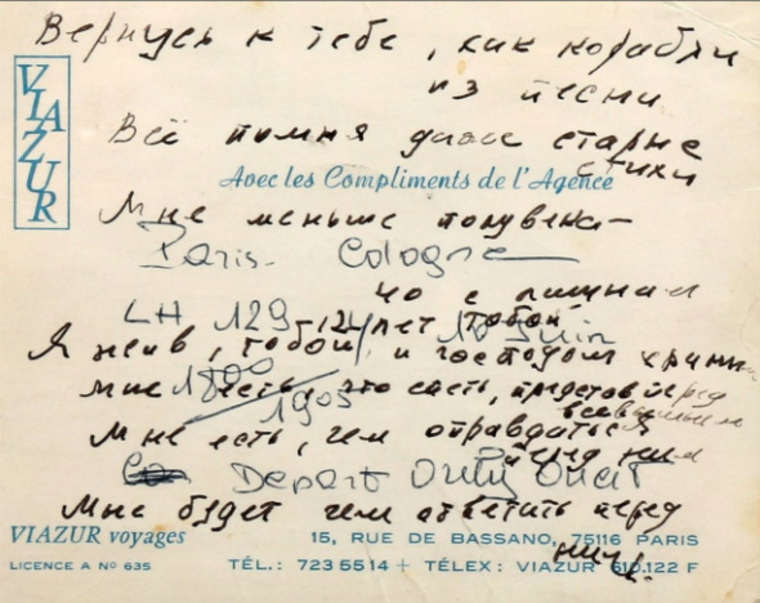 Вернусь к тебе, как корабли
из песни
VIAZUR
Всё помня даже старые
стихи
Avec les Compliments de l'Agence
Мне меньше полувека –
Paris - Cologne
но с лишним
LH 129 10 Juin
12 лет тобой
Я жив, тобой и господом храним
1800
мне есть, что спеть, представ перед
всевышним
1905
Мне есть, чем оправдаться
перед ним
Depart Orly Ouest
Мне будет чем ответить перед
ним.
VIAZUR voyages
LICENCE A Nº 635
15, RUE DE BASSANO, 75116 PARIS
TÉL.: 723 55 14 + TÉLEX: VIAZUR 610.122 F